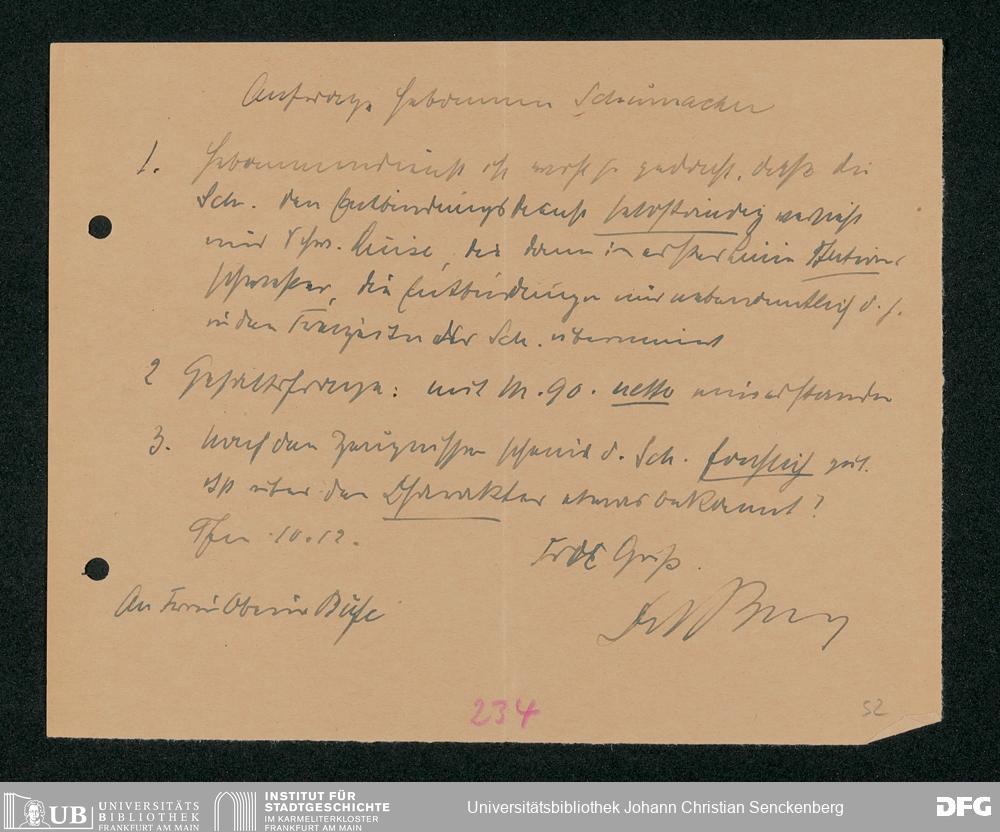 Anfrage Hebamme Schumacher
1. Hebammendienst ist wohl so gedacht, daß die
Sch. den Entbindungsdienst selbständig versieht
und Schw. Luise, die dann in erster Linie Stations-
schwester, die Entbindungen nur nebenamtlich d. h.
in den Freizeiten der Sch. übernimmt
2 Gehaltsfrage: mit M. 90. netto einverstanden
3. Nach den Zeugnissen scheint d. Sch. fachlich gut.
Ist über den Charakter etwas bekannt?
10.12.
Gruß.
An Frau Oberin Buse
234
52
UB UNIVERSITÄTS
BIBLIOTHEK
FRANKFURT AM MAIN
INSTITUT FÜR
STADTGESCHICHTE
IM KARMELITERKLOSTER
FRANKFURT AM MAIN
Universitätsbibliothek Johann Christian Senckenberg
DFG